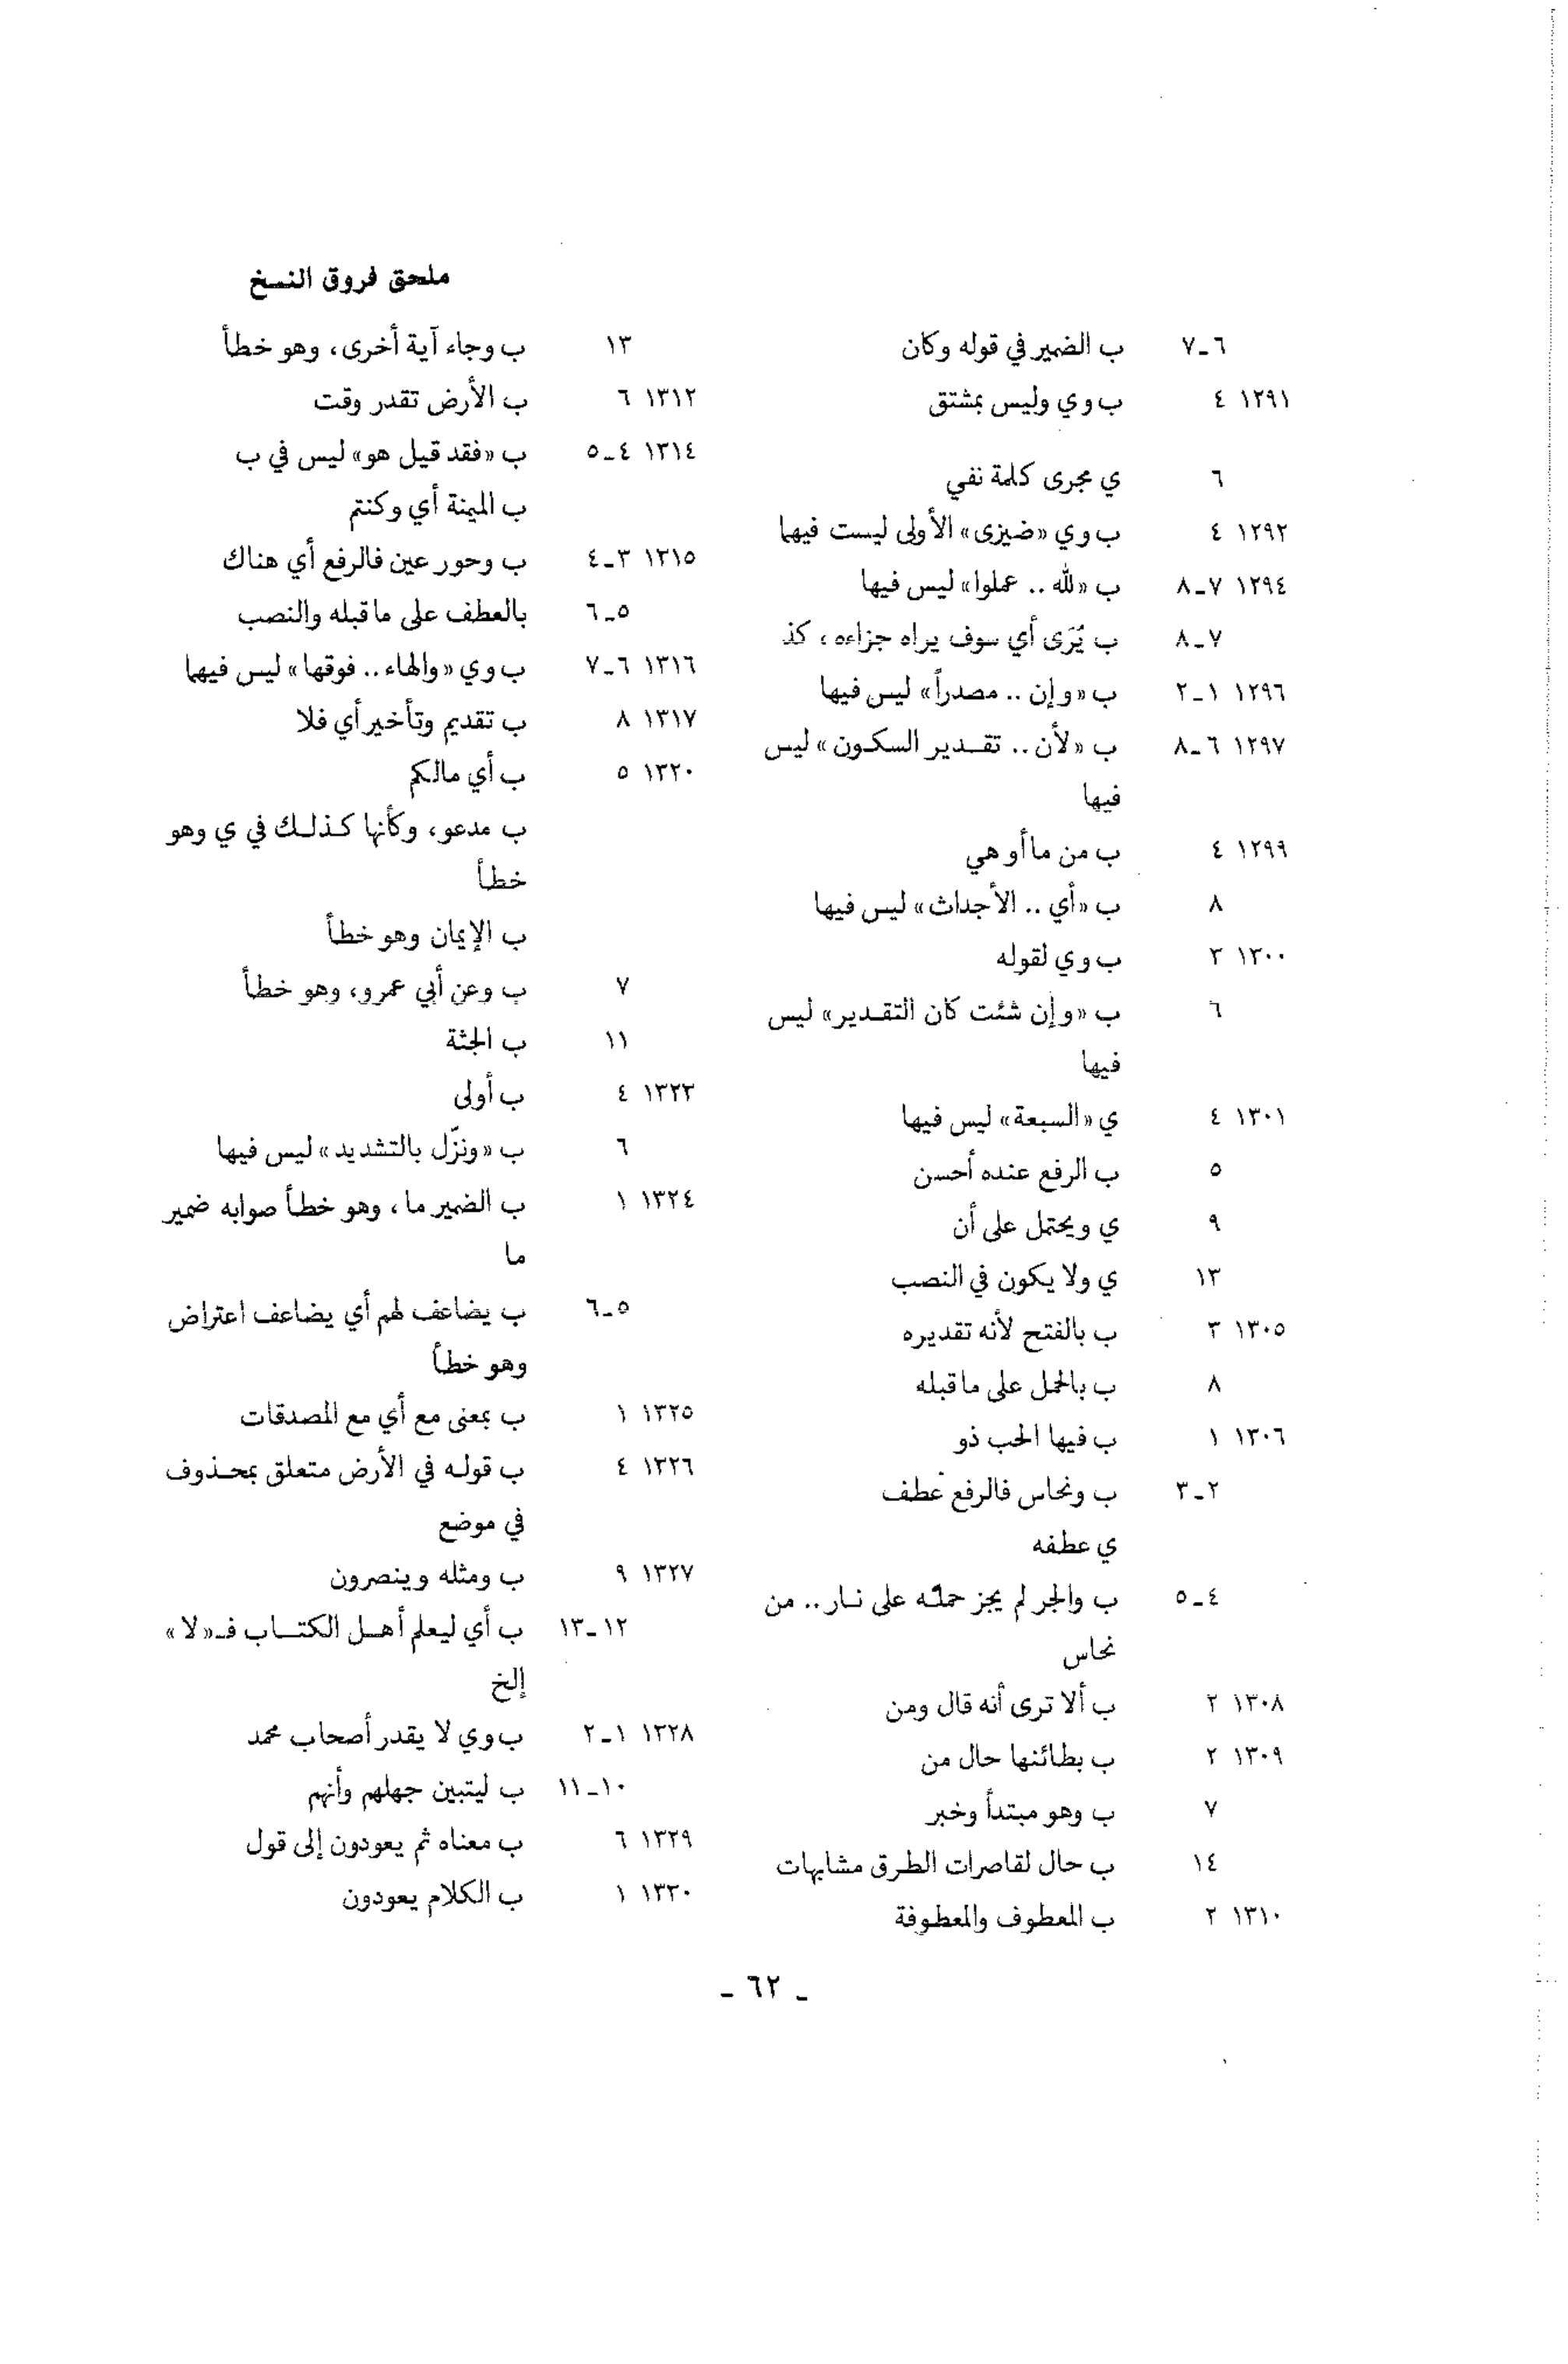 ملحق فروق النسخ
٦ـ٧ ب الضمير في قوله وكان
١٢٩١ ٤ ب وي وليس بمشتق
٦ ي مجرى كلمة نفي
١٢٩٢ ٤ ب وي «ضيزى» الأولى ليست فيها
١٢٩٤ ٧ـ٨ ب «لله .. عملوا» ليس فيها
٧ـ٨ ب يُرَى أي سوف يراه جزاءه ، كذ
١٢٩٦ ١ـ٢ ب «وإن .. مصدراً» ليس فيها
١٢٩٧ ٦ـ٨ ب «لأن .. تقدير السكون» ليس
فيها
١٢٩٩ ٤ ب من ما أو هي
٨ ب «أي .. الأجداث» ليس فيها
١٣٠٠ ٣ ب وي لقوله
٦ ب «وإن شئت كان التقدير» ليس
فيها
١٣٠١ ٤ ي «السبعة» ليس فيها
٥ ب الرفع عنده أحسن
٩ ي ويحتمل على أن
١٣ ي ولا يكون في النصب
١٣٠٥ ٣ ب بالفتح لأنه تقديره
٨ ب بالحمل على ما قبله
١٣٠٦ ١ ب فيها الحب ذو
٢ـ٣ ب ونحاس فالرفع عطف
ي عطفه
٤ـ٥ ب والجر لم يجز حمله على نار .. من
نحاس
١٣٠٨ ٢ ب ألا ترى أنه قال ومن
١٣٠٩ ٢ ب بطائنها حال من
٧ ب وهو مبتدأ وخبر
١٤ ب حال لقاصرات الطرق مشابهات
١٣١٠ ٢ ب المعطوف والمعطوفة
١٣ ب وجاء آية أخرى، وهو خطأ
١٣١٢ ٦ ب الأرض تقدر وقت
١٣١٤ ٤ـ٥ ب «فقد قيل هو» ليس في ب
ب الميمنة أي وكنتم
١٣١٥ ٣ـ٤ ب وحور عين فالرفع أي هناك
٥ـ٦ بالعطف على ما قبله والنصب
١٣١٦ ٦ـ٧ ب وي «والهاء .. فوقها» ليس فيها
١٣١٧ ٨ ب تقديم وتأخير أي فلا
١٣٢٠ ٥ ب أي مالكم
ب مدعو، وكأنها كذلك في ي وهو
خطأ
ب الإيمان وهو خطأ
٧ ب وعن أبي عمرو، وهو خطأ
١١ ب الجثة
١٣٢٣ ٤ ب أولى
٦ ب «ونزّل بالتشديد» ليس فيها
١٣٢٤ ١ ب الضمير ما ، وهو خطأ صوابه ضمير
ما
٥ـ٦ ب يضاعف لهم أي يضاعف اعتراض
وهو خطأ
١٣٢٥ ١ ب بمعنى مع أي مع المصدقات
١٣٢٦ ٤ ب قوله في الأرض متعلق بمحذوف
في موضع
١٣٢٧ ٩ ب ومثله وينصرون
١٢ـ١٣ ب أي ليعلم أهل الكتاب فـ«لا»
إلخ
١٣٢٨ ١ـ٢ ب وي لا يقدر أصحاب محمد
١٠ـ١١ ب ليتبين جهلهم وأنهم
١٣٢٩ ٦ ب معناه ثم يعودون إلى قول
١٣٣٠ ١ ب الكلام يعودون
ـ ٦٢ ـ